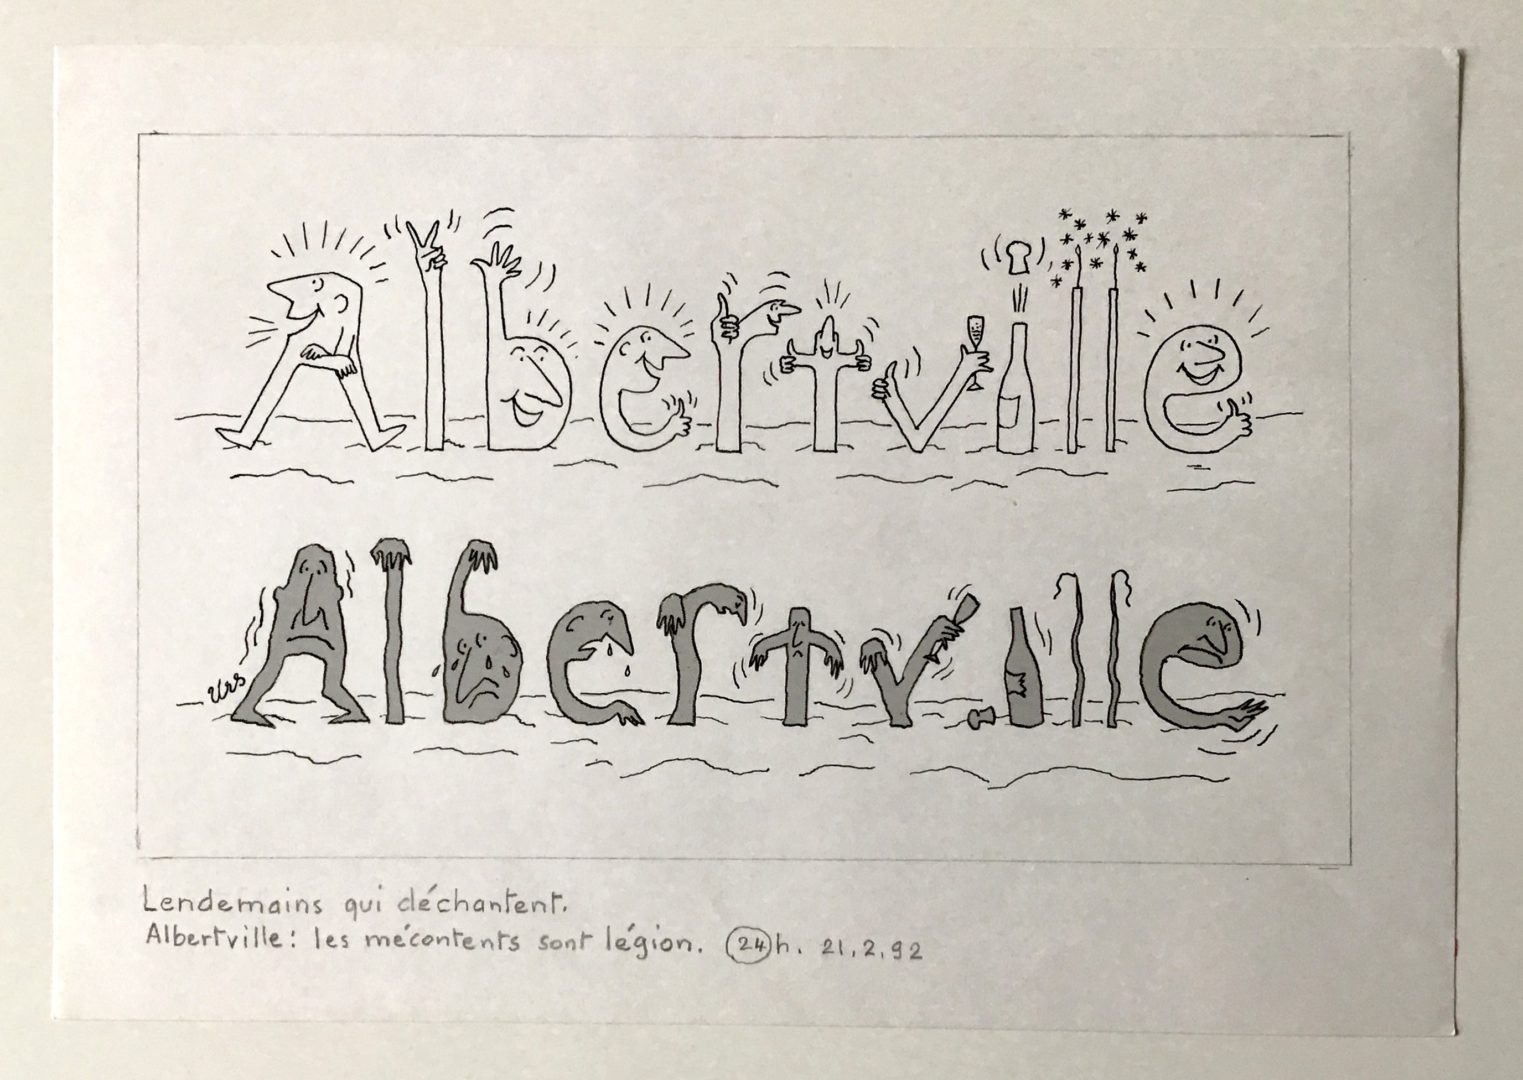 Albertville
Albertville
Urs
Lendemains qui déchantent.
Albertville: les mécontents sont légion. 24 h. 21.2.92